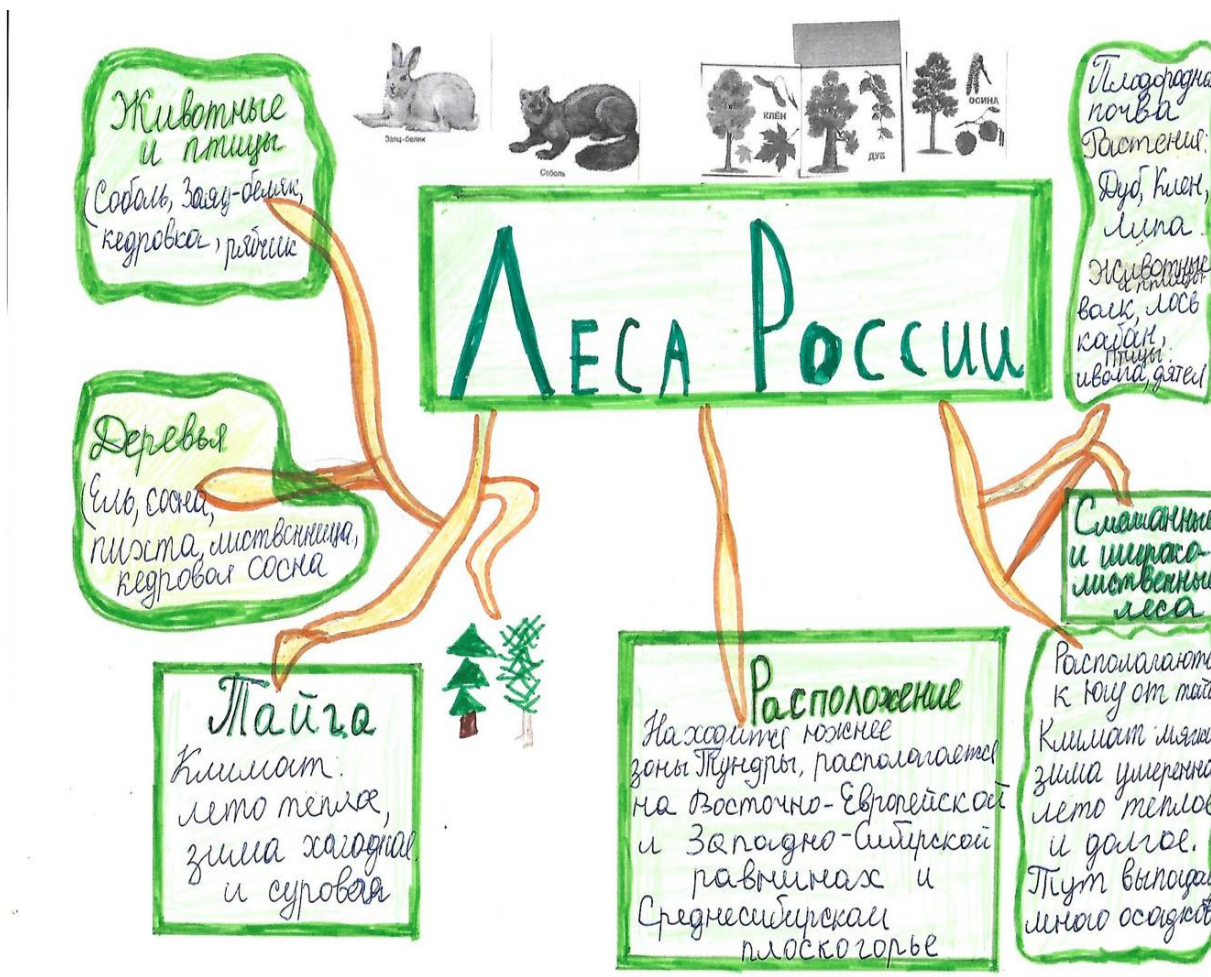 Животные
и птицы
(Соболь, Заяц-беляк,
кедровка, рябчик
Заяц-беляк
Соболь
КЛЁН
ДУБ
ОСИНА
Леса России
Плодородна
почва
Растения:
Дуб, Клен,
липа.
Животные
и птицы:
волк, лось
кабан,
птицы:
иволга, дятел
Деревья
(Ель, сосна,
пихта, лиственница,
кедровая сосна
Смешанные
и широко-
лиственные
леса
Тайга
Климат:
лето теплое,
зима холодная
и суровая
Расположение
Находится южнее
зоны Тундры, располагается
на Восточно-Европейской
и Западно-Сибирской
равнинах и
Среднесибирском
плоскогорье
Располагаютс
к югу от тай
Климат: мягки
зима умеренна
лето теплое
и долгое.
Тут выпада
много осадков